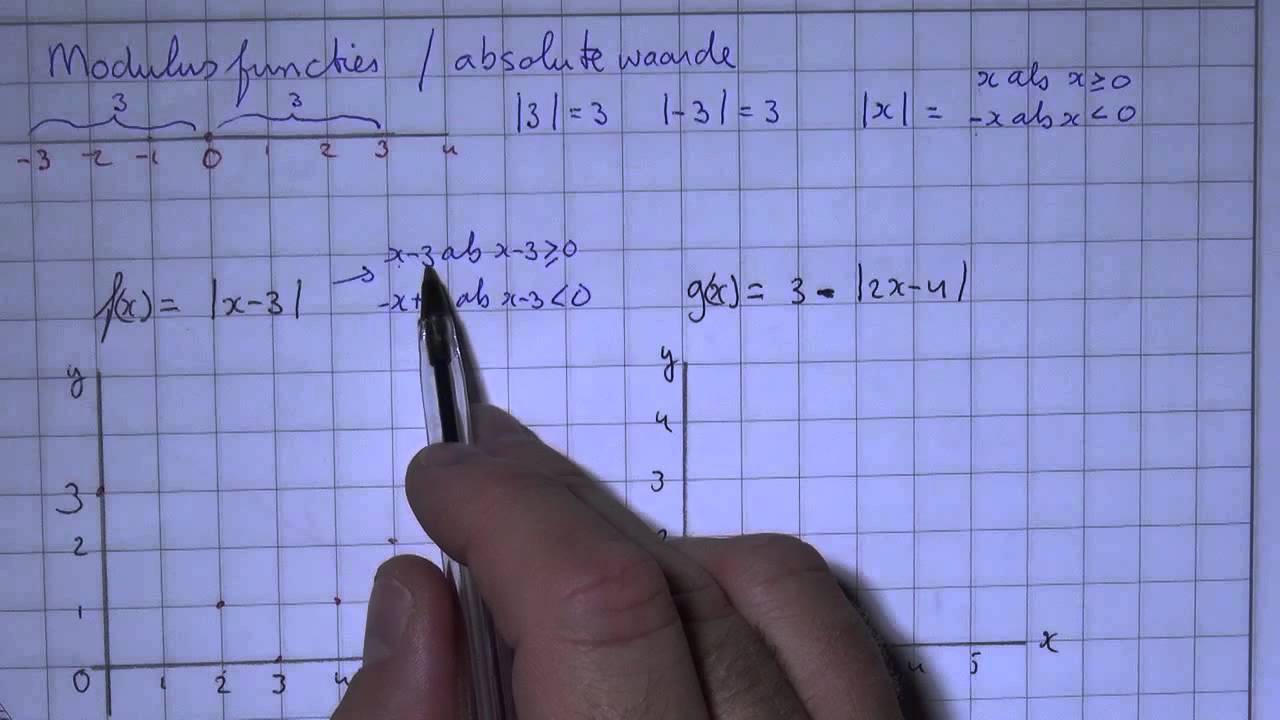 Modulus functies / absolute waarde
3 3
-3 -2 -1 0 1 2 3 4
|3| = 3 |-3| = 3 |x| = x als x ≥ 0
-x als x < 0
f(x) = |x-3| → x-3 als x-3 ≥ 0
-x+ als x-3 < 0
g(x) = 3 - |2x-4|
y
3
2
1
0 1 2 3 4
y
4
3
4 5 x